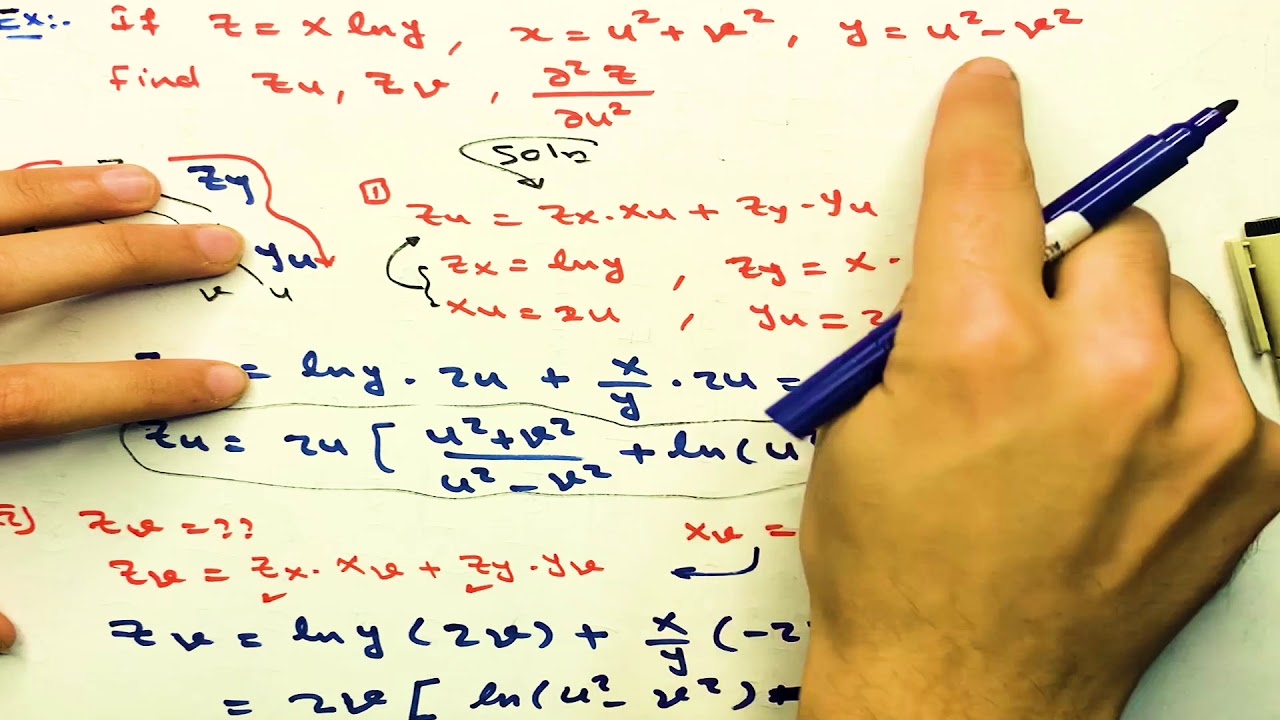 Ex:. If z = x ln y, x = u² + v², y = u² - v²
Find Zu, Zv, ∂²z/∂u²
Soln
Zy
yu
v u
① Zu = Zx · xu + Zy · yu
Zx = ln y , Zy = x ·
xu = 2u , yu = 2
= ln y · 2u + x/y · 2u =
Zu = 2u [ (u² + v²)/(u² - v²) + ln(u²
2) Zv = ?? xv =
Zv = Zx · xv + Zy · yv
Zv = ln y (2v) + x/y (-2
= 2v [ ln(u² - v²)